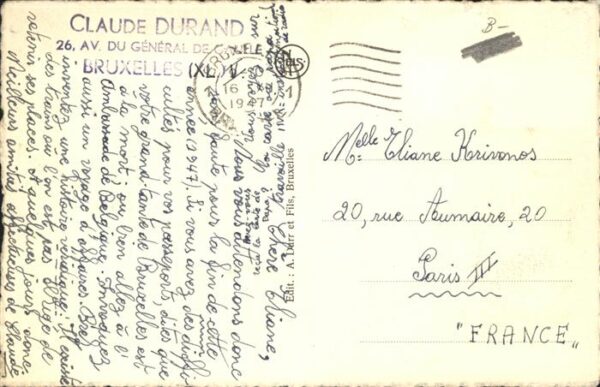 CLAUDE DURAND
26, AV. DU GÉNÉRAL DE GAULLE
BRUXELLES (XL)
16
1947
B-
Melle Eliane Krivonos
20, rue Aumaire, 20
Paris III
"FRANCE"
Edit.: A. Dohr et Fils, Bruxelles
Chère Eliane,
Nous vous attendons donc
sans faute pour la fin de cette
année (1947). Si vous avez des diffi-
cultés pour vos passeports, dites que
votre grand-tante de Bruxelles est
à la mort; ou bien allez à l'
Ambassade de Belgique. Invoquez
aussi un voyage d'affaires. Bref
inventez une histoire véridique: Il existe
des trains où l'on est pas obligé de
retenir ses places. A quelques jours donc
Meilleures amitiés affectueuses de Claude